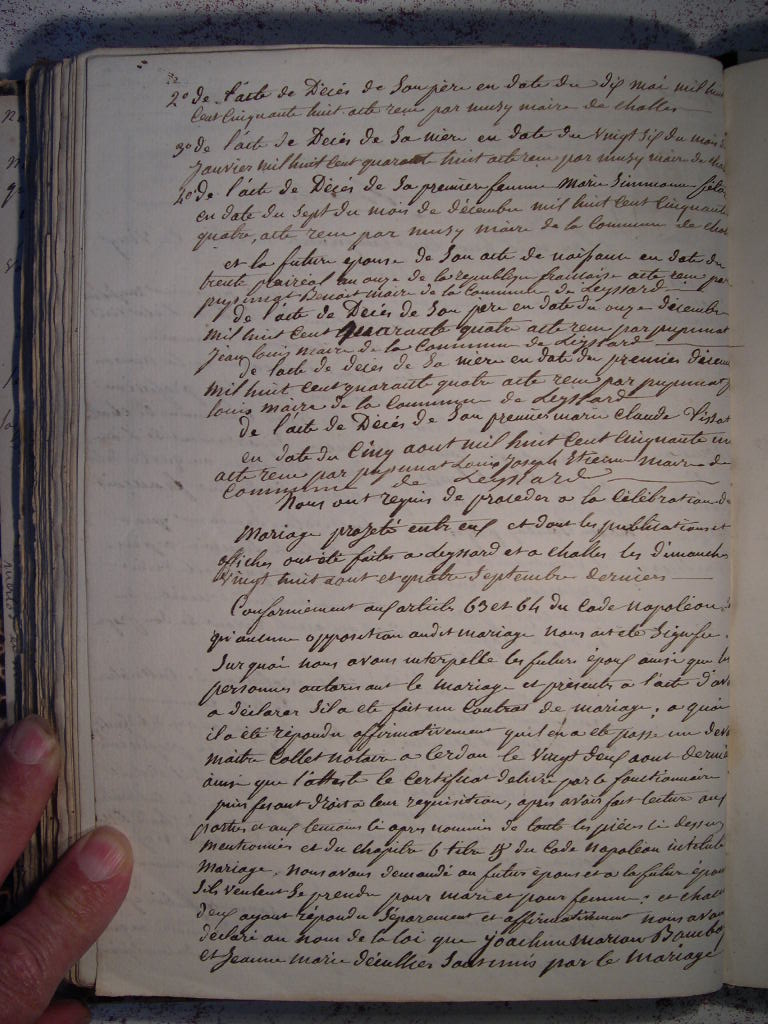 2° de l'acte de Décès de Son père en date du dix mai mil huit
Cent Cinquante huit acte recu par musy maire de challes
3° de l'acte de Décès de Sa mère en date du vingt six du mois de
Janvier mil huit Cent quarante huit acte recu par musy maire de
4° de l'acte de Décès de Sa premiere femme Marie
en date du Sept du mois de décembre mil huit cent Cinquante
quatre, acte recu par musy maire de la Commune de
et la future épouse de Son acte de naissance en date du
trente plairéal an onze de la république francaise acte recu par
Benoit maire de la Commune de Leyssard
de l'acte de Décès de Son père en date du onze décembre
mil huit Cent quarante quatre acte recu par
Jean louis maire de la Commune de Leyssard
de l'acte de décès de Sa mère en date du premier
mil huit Cent quarante quatre acte recu par
louis maire de la Commune de Leyssard
de l'acte de Décès de Son premier mari Claude
en date du Cinq aout mil huit Cent Cinquante un
acte recu par Louis Joseph Etienne maire de
Commune de Leyssard
Nous ont requis de proceder a la Célébration du
Mariage projeté entre eux et dont les publications et
affiches ont été faites a Leyssard et a challes les dimanches
Vingt huit aout et quatre Septembre derniers
Conformément aux articles 63 et 64 du Code napoléon,
qu'aucune opposition audit mariage nous ait été Signifié.
Surquoi nous avons interpellé les futurs époux ainsi que les
personnes autorisant le mariage et présents a l'acte d'avoir
a déclarer S'il a été fait un Contrat de mariage; a quoi
il a été répondu affirmativement qu'il en a été passé un devant
maitre Collet notaire a Cerdon le Vingt deux aout dernier
ainsi que l'atteste le Certificat délivré par le fonctionnaire
puis fesant droit a leur requisition, apres avoir fait lecture aux
parties et aux temoins Ci apres nommés de toute les pièces Ci dessus
mentionnés et du chapitre 6 titre 5 du Code Napoléon intitulé
Mariage. Nous avons demandé au futur époux et a la future épouse
S'ils veulent Se prendre pour mari et pour femme; et chacun
d'eux ayant répondu Séparement et affirmativement nous avons
déclaré au nom de la loi que Joachim
et Jeanne Marie Sont unis par le Mariage